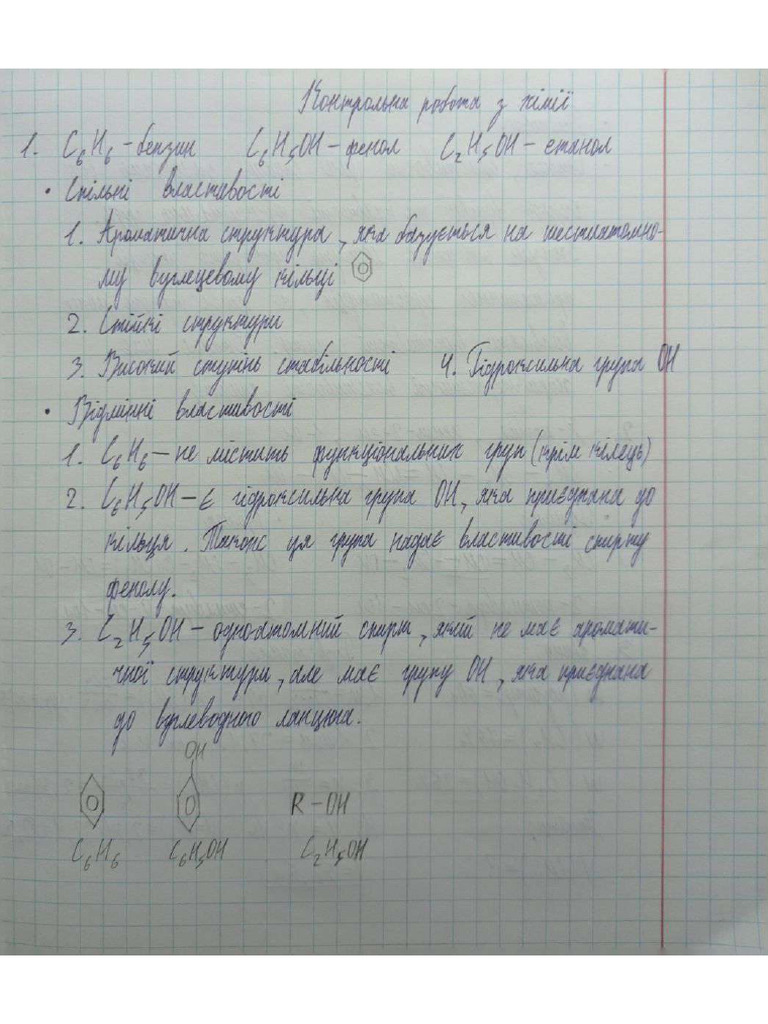 Контрольна робота з хімії
1. C₆H₆ – бензин C₆H₅OH – фенол C₂H₅OH – етанол
• Спільні властивості
1. Ароматична структура, яка базується на шестиатомно-
му вуглецевому кільці
2. Стійкі структури
3. Високий ступінь стабільності 4. Гідроксильна група OH
• Відмінні властивості
1. C₆H₆ – не містить функціональних груп (крім кілець)
2. C₆H₅OH – є гідроксильна група OH, яка приєднана до
кільця. Також ця група надає властивості спирту
фенолу.
3. C₂H₅OH – одноатомний спирт, який не має аромати-
чної структури, але має групу OH, яка приєднана
до вуглеводного ланцюга.
OH
R – OH
C₆H₆ C₆H₅OH C₂H₅OH